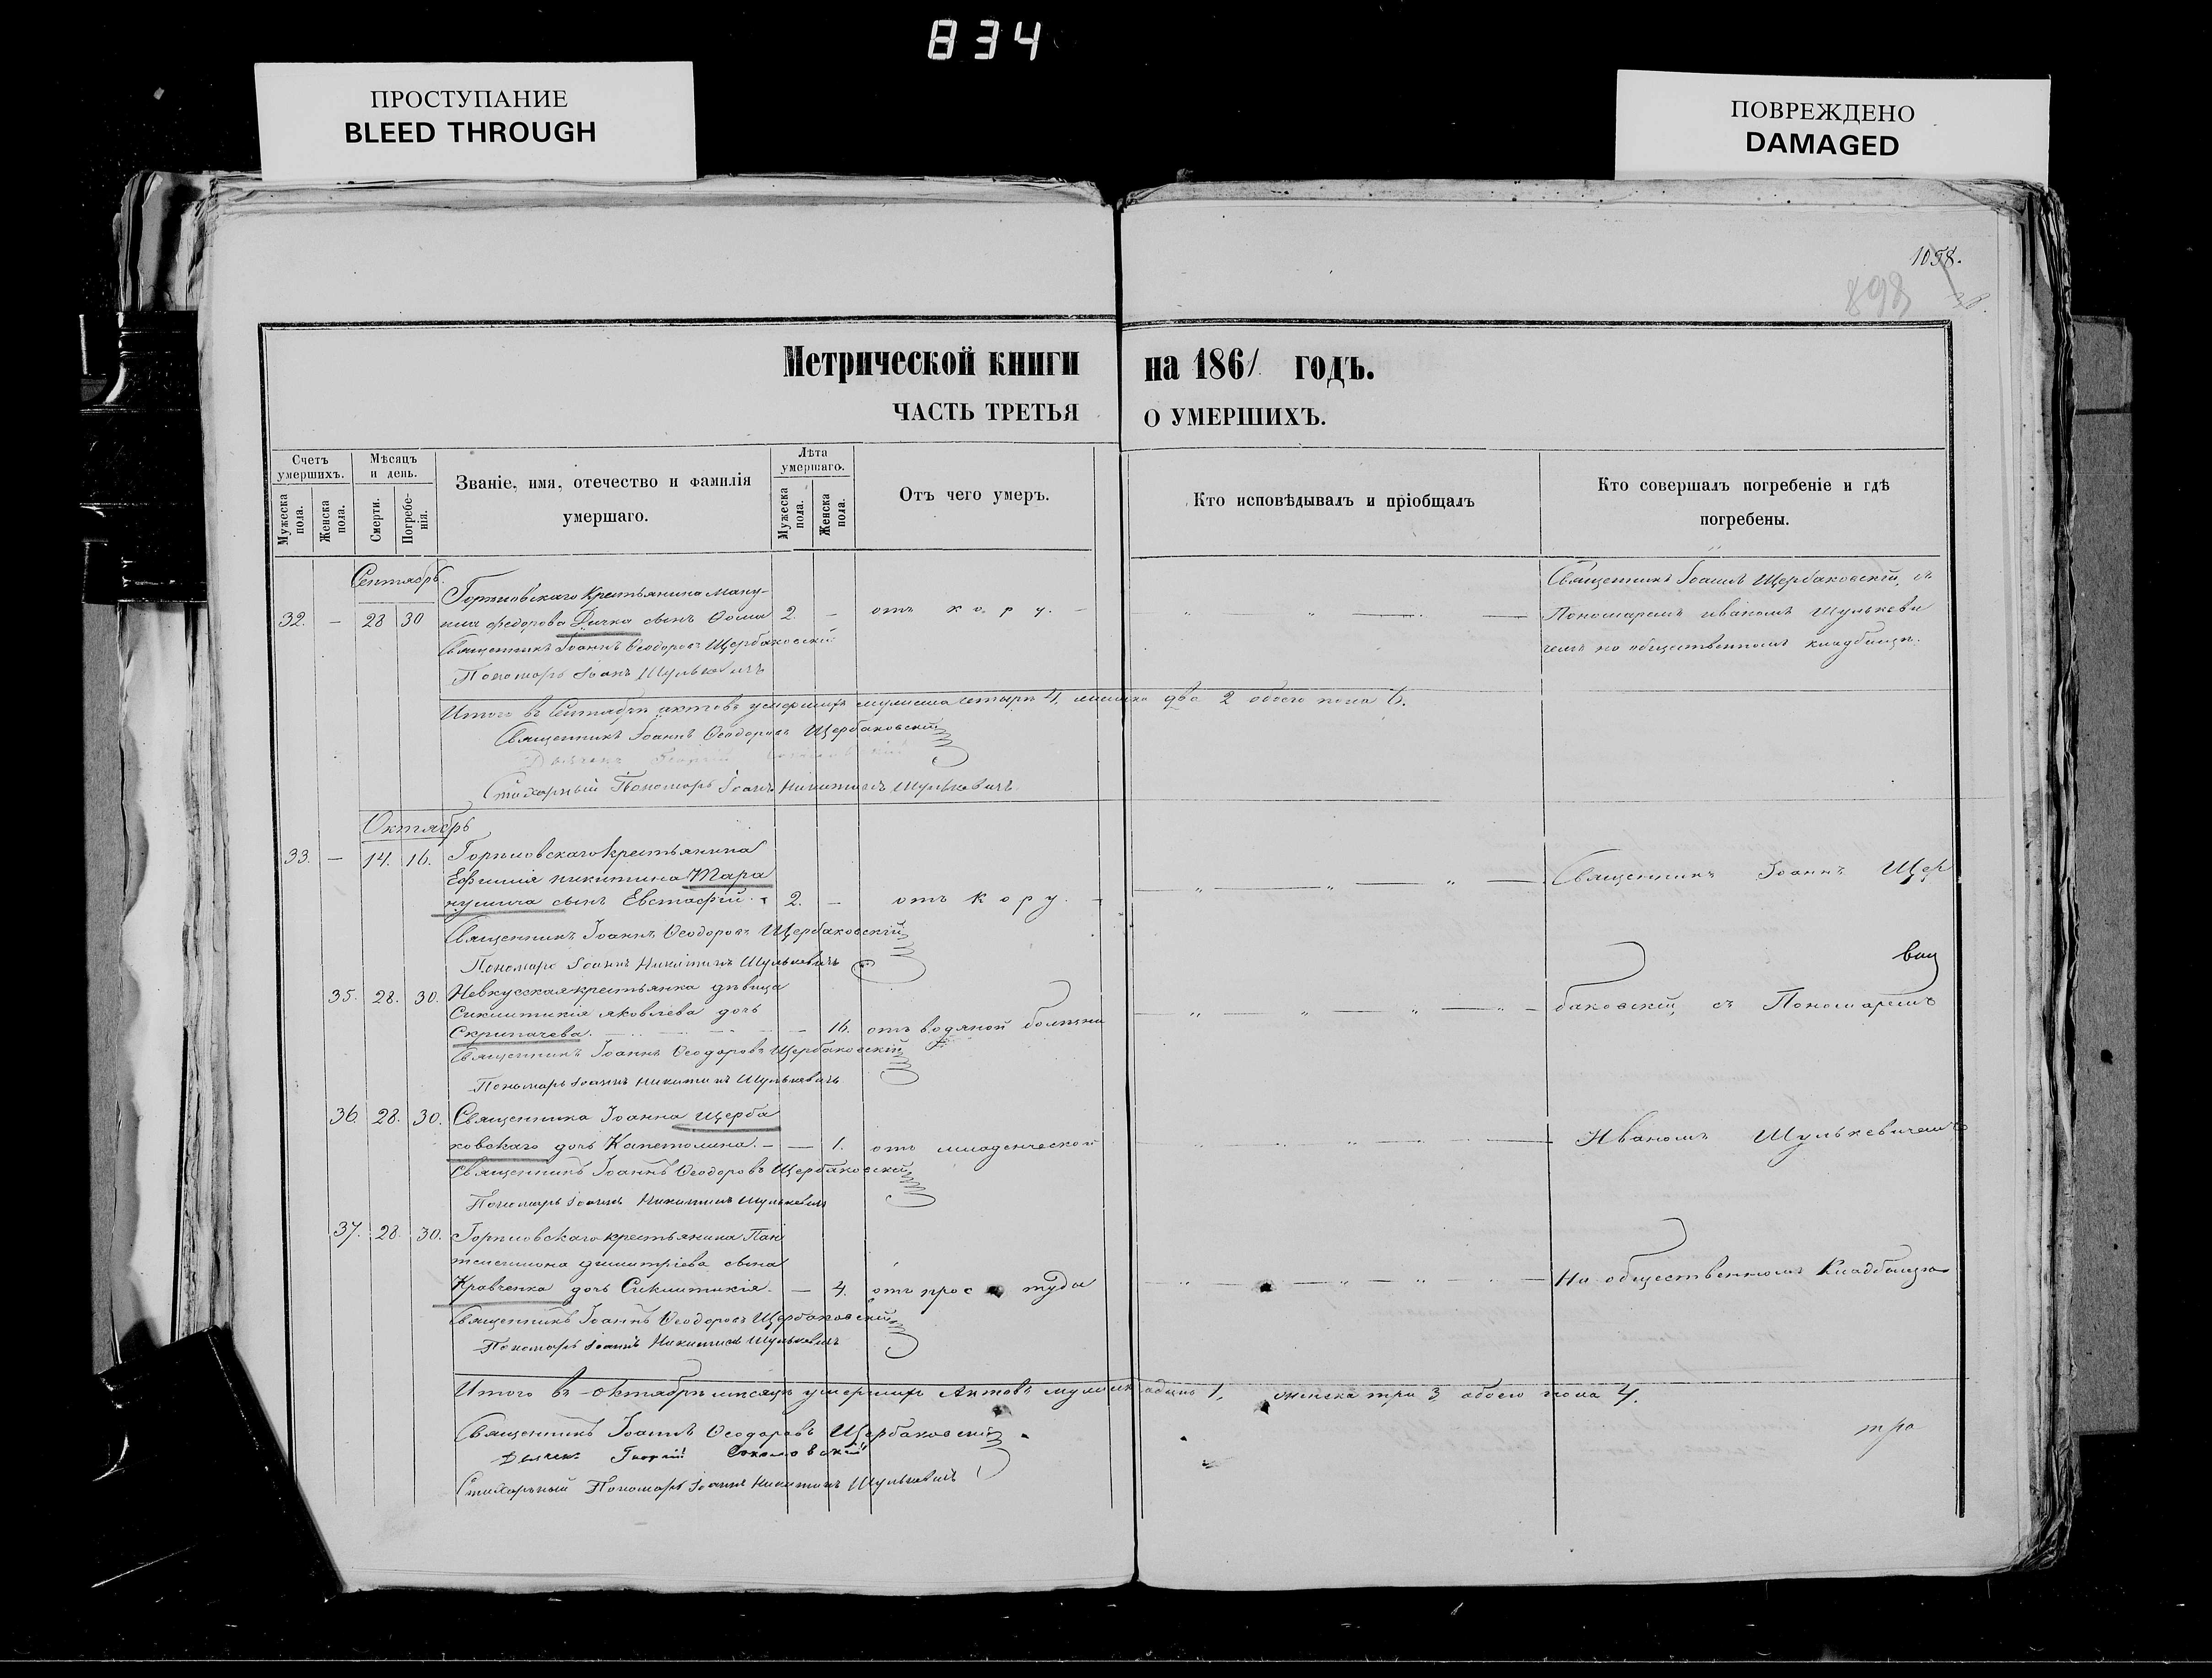 834
ПРОСТУПАНИЕ
BLEED THROUGH
ПОВРЕЖДЕНО
DAMAGED
1058.
898
Метрической книги на 1861 годъ.
ЧАСТЬ ТРЕТЬЯ О УМЕРШИХЪ.
Счетъ умершихъ.
Мужеска пола.
Женска пола.
Мѣсяцъ и день.
Смерти.
Погребенія.
Званіе, имя, отечество и фамилія
умершаго.
Лѣта умершаго.
Мужеска пола.
Женска пола.
Отъ чего умеръ.
Кто исповѣдывалъ и пріобщалъ
Кто совершалъ погребеніе и гдѣ
погребены.
Сентябрь.
крестьянина Ману-
32. — 28 30 Федорова Дичка сынъ Фома 2. — отъ кору. —
Священникъ Іоаннъ Ѳеодоровъ Щербаковскій
Пономарь Іоанъ Шулькевичъ
Священникъ Іоаннъ Щербаковскій, съ
Пономаремъ Иваномъ Шулькеви
чемъ на общественномъ кладбищѣ.
Итого въ Сентябрѣ актовъ умершихъ четыри 4, два 2 обоего пола 6.
Священникъ Іоаннъ Ѳеодоровъ Щербаковскій
Стихарный Пономарь Іоаннъ Никитинъ Шулькевичъ
Октябрь
33. — 14. 16. крестьянина
Ефимія Никитина Мара
сынъ Евстафій. 2. — отъ кору. —
Священникъ Іоаннъ Ѳеодоровъ Щербаковскій
Пономарь Іоаннъ Никитинъ Шулькевичъ
Священникъ Іоаннъ Щер
35. 28. 30. Невкусская крестьянка дѣвица
Синклитикія Яковлева дочь
Скрипачева. — 16. отъ водяной болѣзни
Священникъ Іоаннъ Ѳеодоровъ Щербаковскій
Пономарь Іоаннъ Никитинъ Шулькевичъ
баковскій, съ Пономаремъ
36. 28. 30. Священника Іоанна Щерба
ковскаго дочь Капетолина. — — 1. отъ младенческой
Священникъ Іоаннъ Ѳеодоровъ Щербаковскій
Пономарь Іоаннъ Никитинъ Шулькевичъ
Иваномъ Шулькевичемъ
37. 28. 30. крестьянина Пан
телеимона Димитріева сына
Кравченка дочь Синклитикія. — 4. отъ простуды
Священникъ Іоаннъ Ѳеодоровъ Щербаковскій
Пономарь Іоаннъ Никитинъ Шулькевичъ
На общественномъ Кладбищѣ
Итого въ Октябрѣ мѣсяцѣ умершихъ Актовъ одинъ 1, женска три 3 обоего пола 4.
Священникъ Іоаннъ Ѳеодоровъ Щербаковскій
Дьячекъ Георгій Соколовскій
Стихарный Пономарь Іоаннъ Никитинъ Шулькевичъ